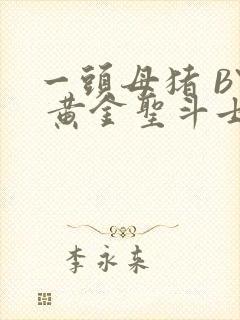 一頭母猪 BY
黄金聖斗士
李永来